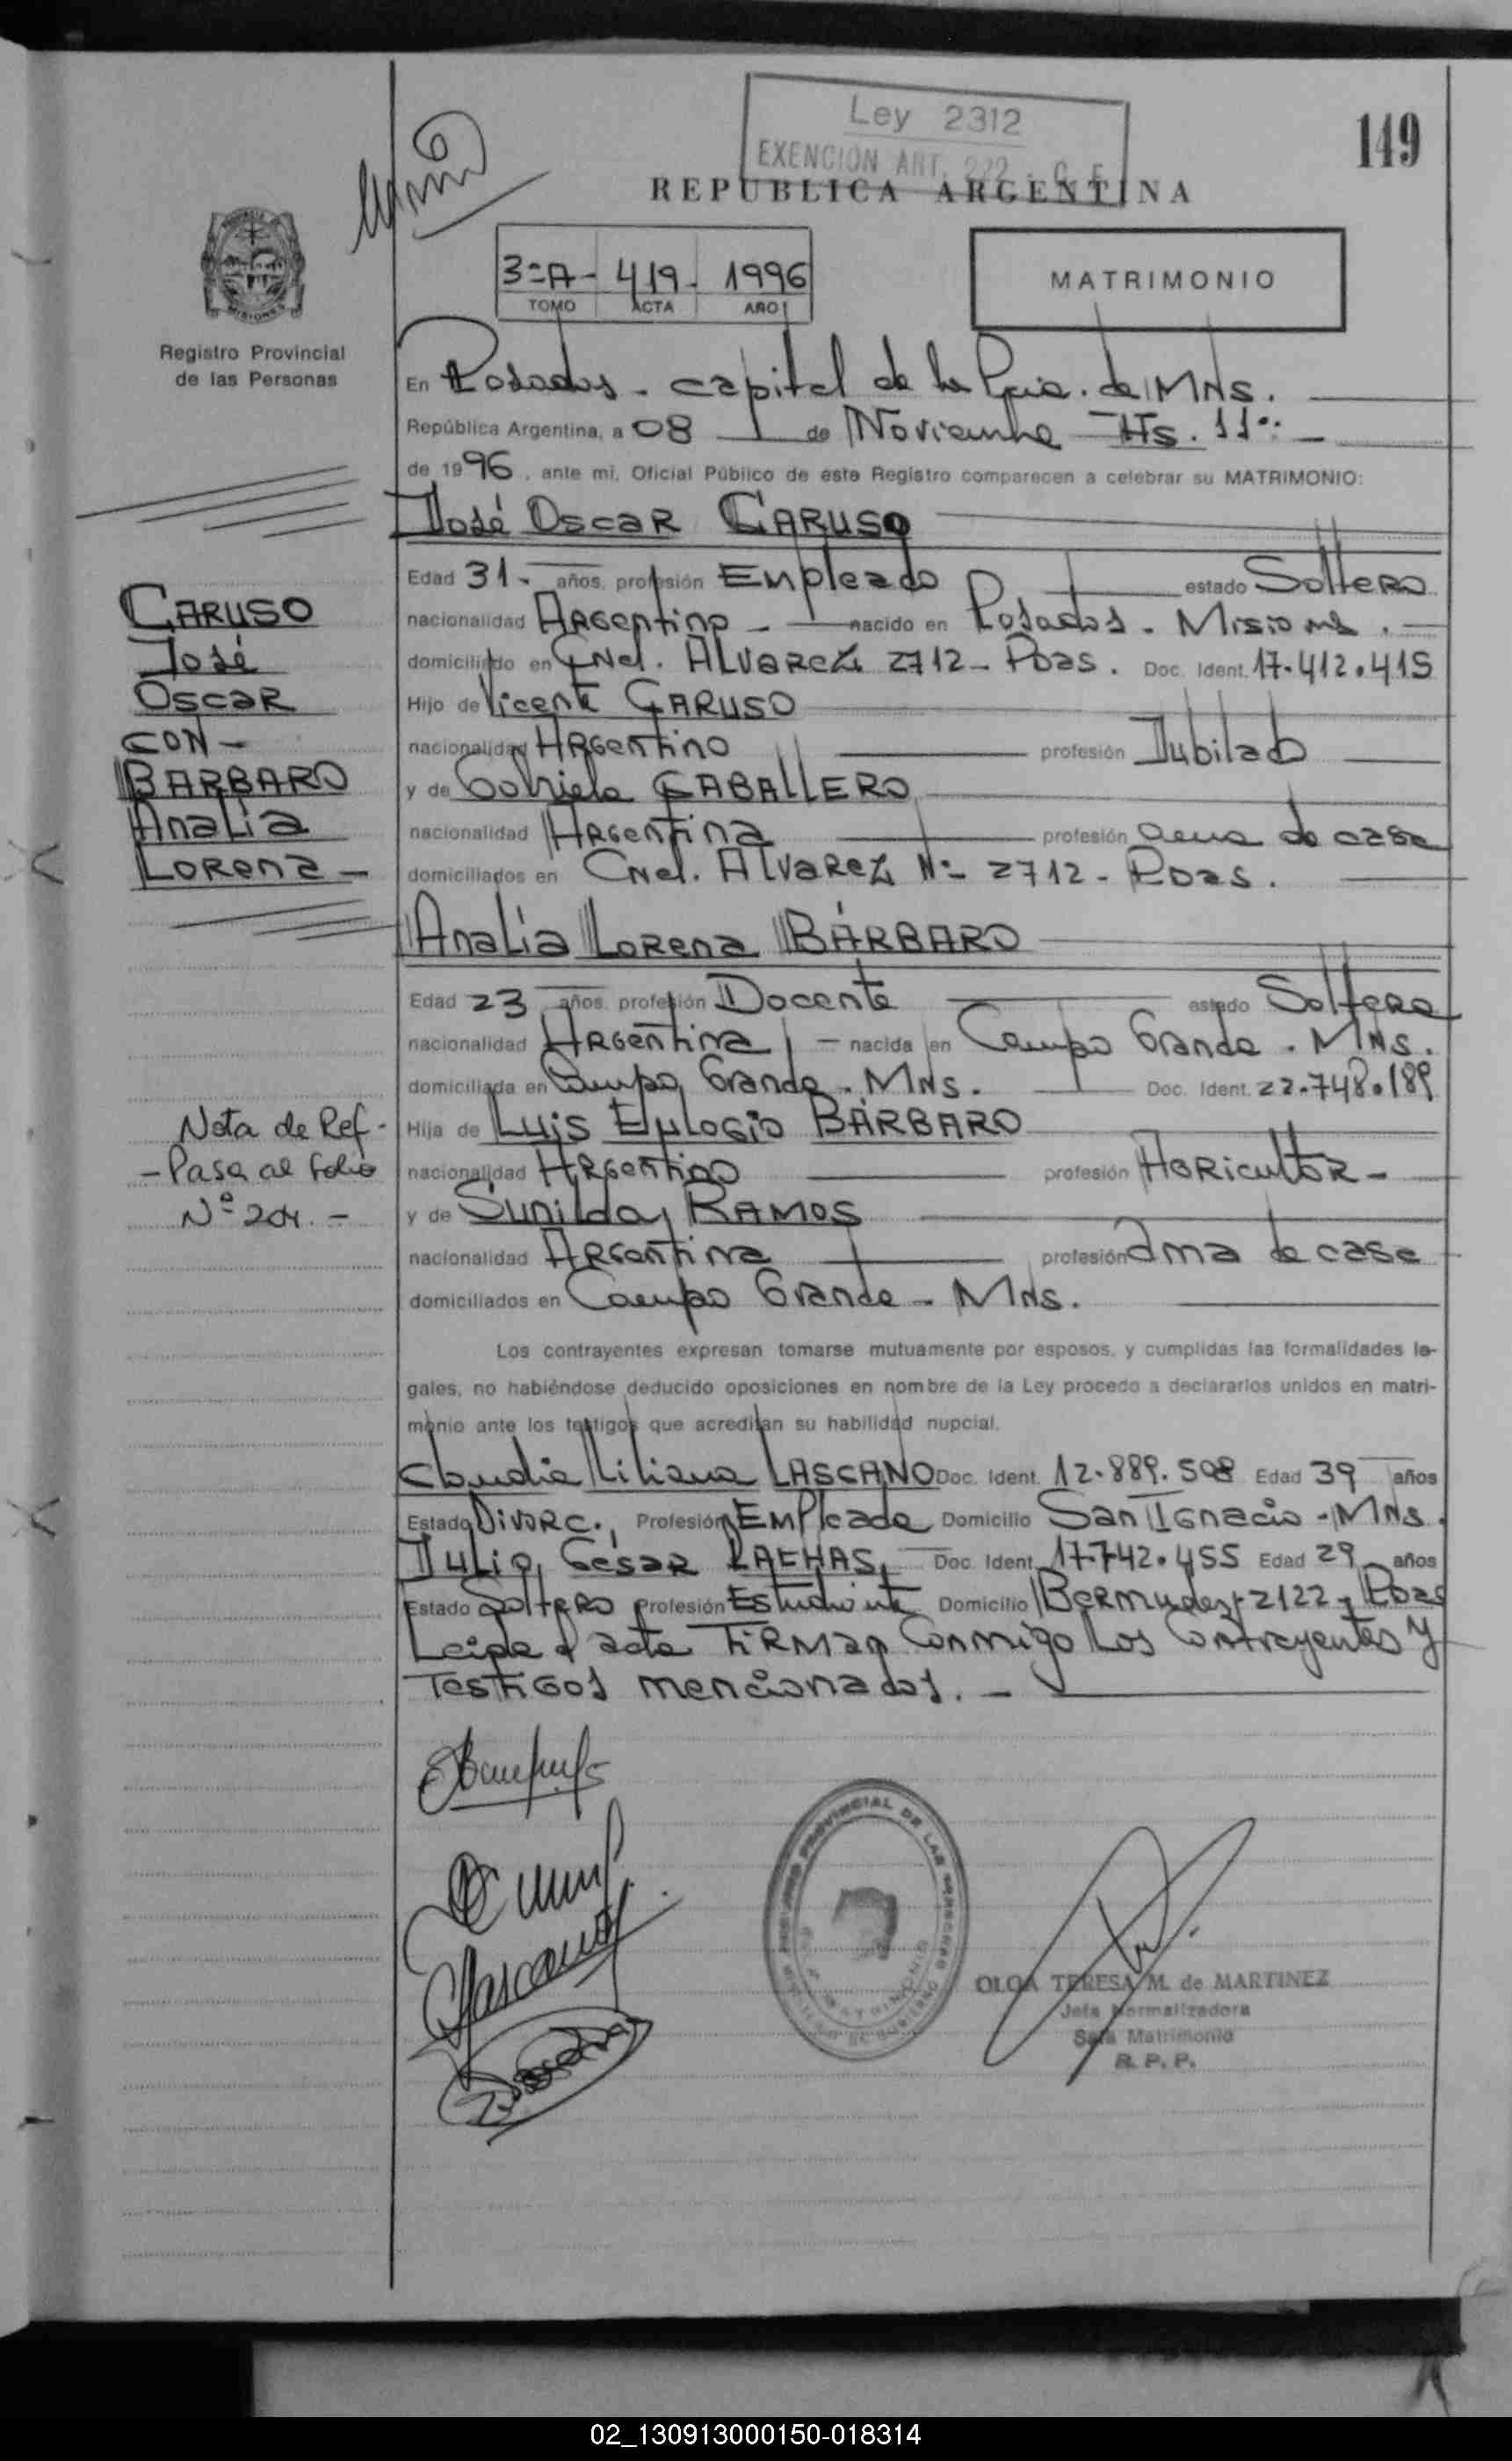 Ley 2312
EXENCION ART. 222 - C. F.
149
REPUBLICA ARGENTINA
3=A- 419- 1996
TOMO ACTA AÑO
MATRIMONIO
MISIONES
Registro Provincial
de las Personas
En Posadas - capital de la Pcia. de MNS.
República Argentina, a 08 de Noviembre Hs. 11
de 1996, ante mi, Oficial Público de este Registro comparecen a celebrar su MATRIMONIO:
José Oscar CARUSO
Edad 31- años, profesión Empleado estado Soltero
nacionalidad Argentino - nacido en Posadas - Misiones.
domiciliado en CNel. ALVAREZ 2712- Pdas. Doc. Ident. 17.412.415
Hijo de Vicente CARUSO
nacionalidad Argentino profesión Jubilado
y de Gabriela CABALLERO
nacionalidad Argentina profesión ama de casa
domiciliados en CNel. ALVAREZ Nº 2712 - Pdas.
CARUSO
José
Oscar
CON-
BARBARO
Analía
Lorena-
Analía Lorena BÁRBARO
Edad 23 años, profesión Docente estado Soltera
nacionalidad Argentina - nacida en Campo Grande - MNS.
domiciliada en Campo Grande - MNS. Doc. Ident. 22.748.189
Hija de Luis Eulogio BÁRBARO
nacionalidad Argentino profesión Agricultor-
y de Sunilda RAMOS
nacionalidad Argentina profesión ama de casa
domiciliados en Campo Grande - MNS.
Nota de Ref-
-Pasa al folio
Nº 204.-
Los contrayentes expresan tomarse mutuamente por esposos, y cumplidas las formalidades le-
gales, no habiéndose deducido oposiciones en nombre de la Ley procedo a declararlos unidos en matri-
monio ante los testigos que acreditan su habilidad nupcial.
Claudia Liliana LASCANO Doc. Ident. 12.889.508 Edad 39 años
Estado Divorc., Profesión Empleada Domicilio San Ignacio - MNS.
Julio César Doc. Ident. 17.742.455 Edad 29 años
Estado Soltero Profesión Estudiante Domicilio Bermudez 2122 - Pdas
Leida el acta firman conmigo los contrayentes y
testigos mencionados. -
REGISTRO PROVINCIAL DE LAS PERSONAS
MATRIMONIO
MINISTERIO DE GOBIERNO
OLGA TERESA M. de MARTINEZ
Jefa Normalizadora
Sala Matrimonio
R. P. P.
02_130913000150-018314